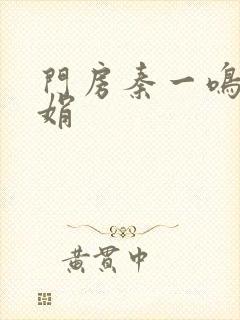 門房秦一鳴
娟
黃貫中